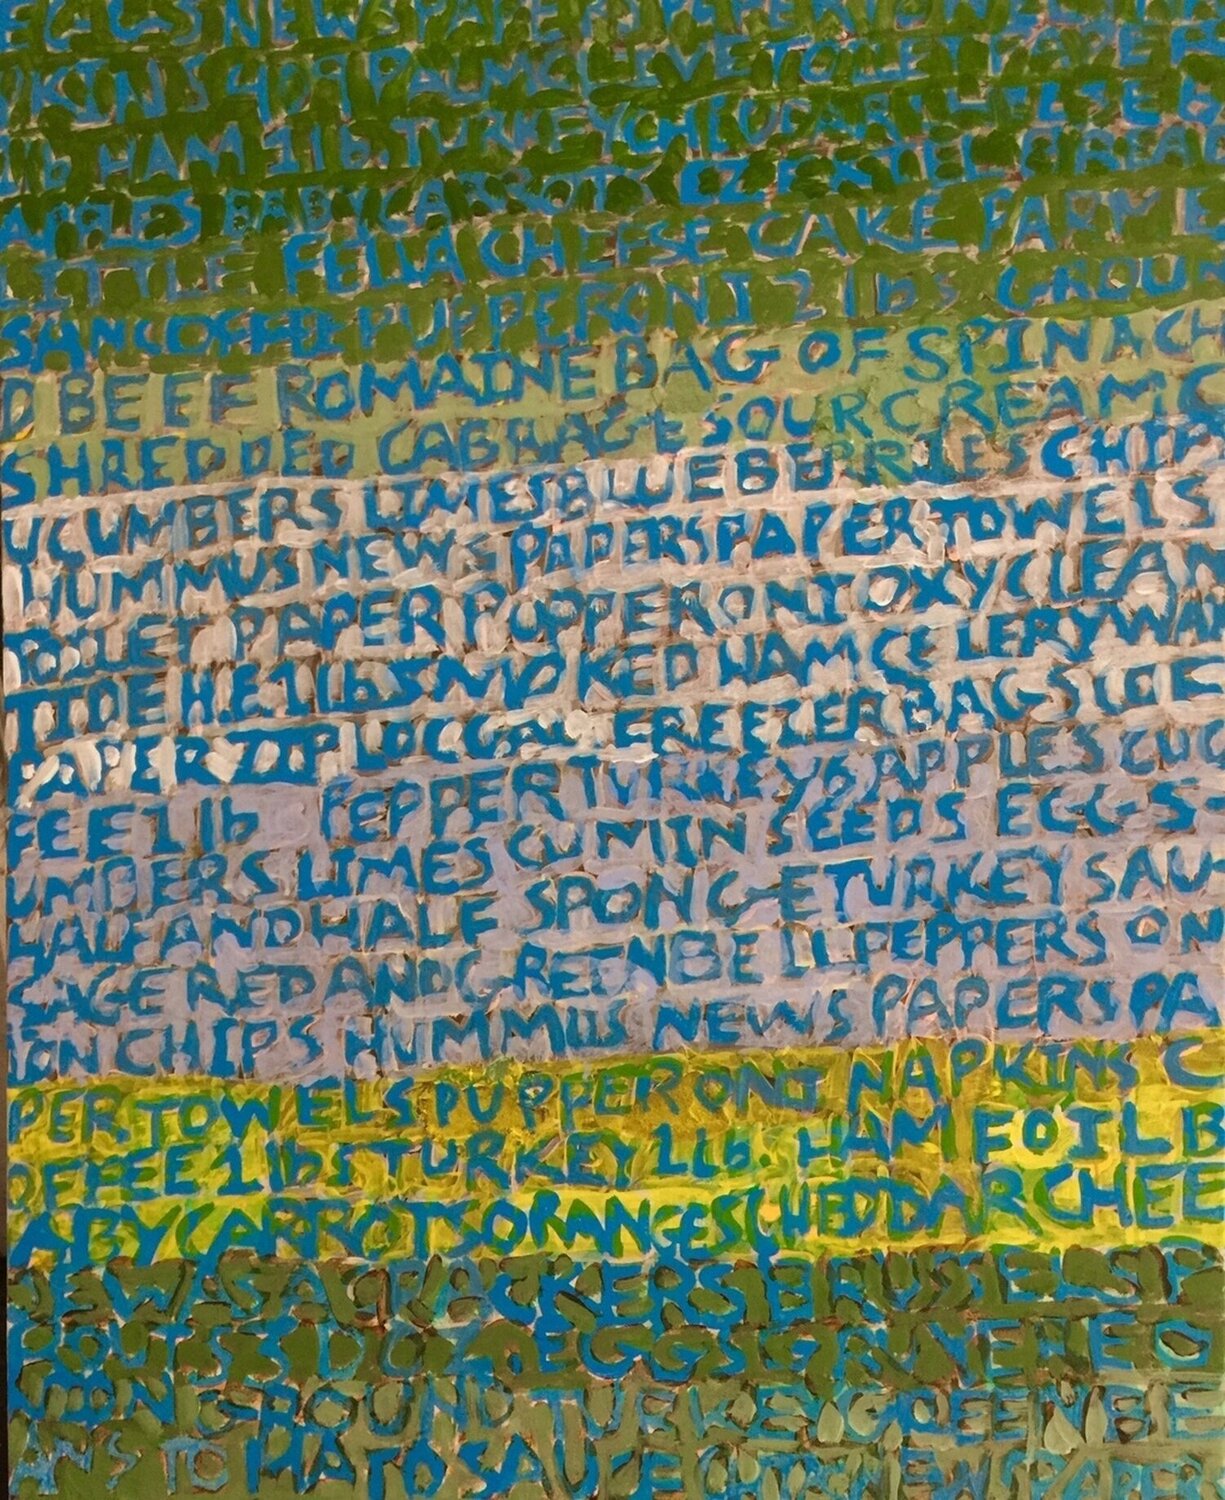 EGGS NEWSPAPER PAPER
PKINS 409 PALMOLIVE TOILET PAPER
HAM 1 lb TURKEY CHEDDAR
APPLES BABY CARROTS
LITTLE FELLA CHEESE CAKE PARME
SAN COFFEE PUPPERONI 2 lbs GROUN
D BEEF ROMAINE BAG OF SPINACH
SHREDDED CABBAGE SOUR CREAM C
UCUMBERS LIMES BLUEBERRIES CHIPS
HUMMUS NEWSPAPERS PAPER TOWELS
TOILET PAPER PUPPERONI OXYCLEAN
TIDE HE 1 lb SMOKED HAM CELERY WAX
PAPER ZIP LOC GAL FREEZER BAGS COF
FEE 1 lb PEPPER TURKEY 6 APPLES CUC
UMBERS LIMES CUMIN SEEDS EGGS
HALF AND HALF SPONGE TURKEY SAU
SAGE RED AND GREEN BELL PEPPERS ON
ION CHIPS HUMMUS NEWS PAPERS PA
PER TOWELS PUPPERONI NAPKINS C
OFFEE 1 lbs TURKEY 1 lb. HAM FOIL B
ABY CARROTS ORANGES CHEDDAR CHEE
CRACKERS BRUSSEL SP
ROUTS 3 DOZ EGGS GRUYERE
GROUND TURKEY GREEN BE
ANS TOMATO SAUCE NEWSPAPER